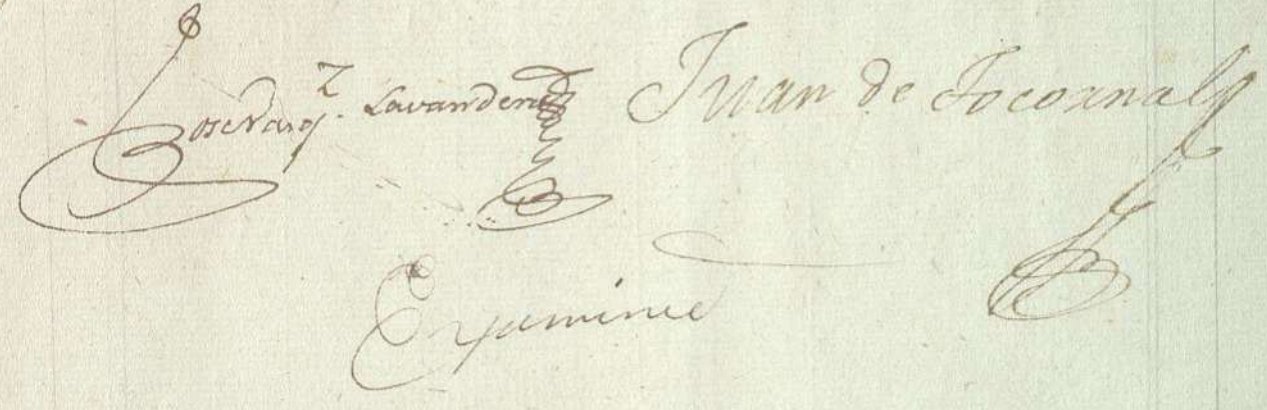 Jose Vasq.z Lavandera Juan de Tocornal
Examine